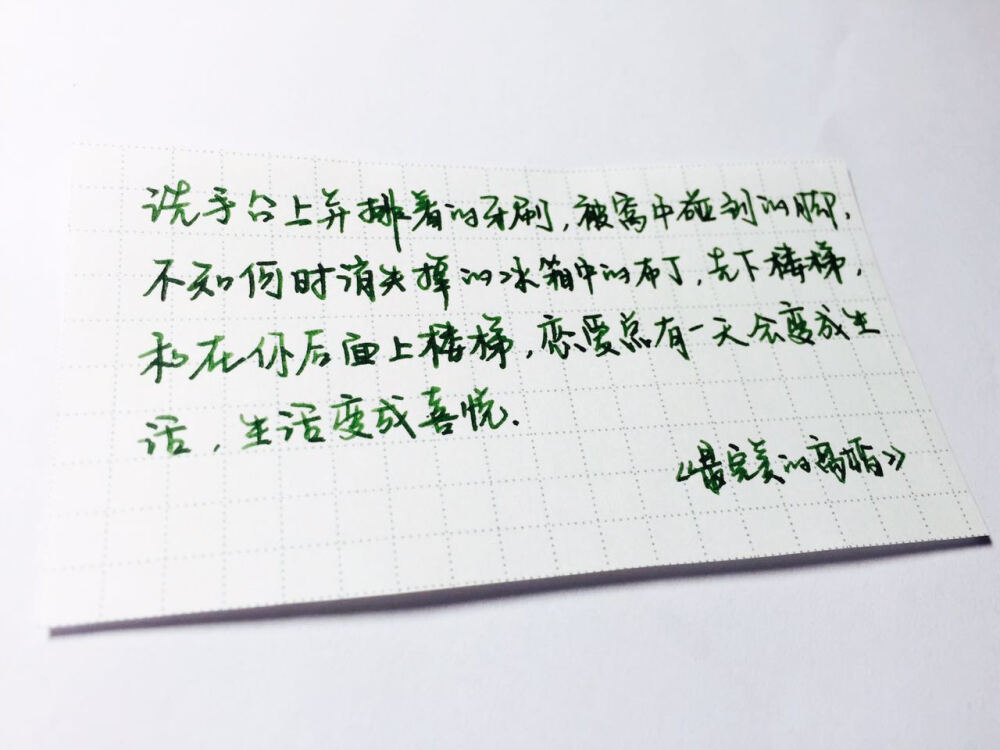 洗手台上并排着的牙刷,被窝中碰到的脚,
不知何时消失掉的冰箱中的布丁,先下楼梯,
和在你后面上楼梯,恋爱总有一天会变成生
活,生活变成喜悦.
《最完美的离婚》